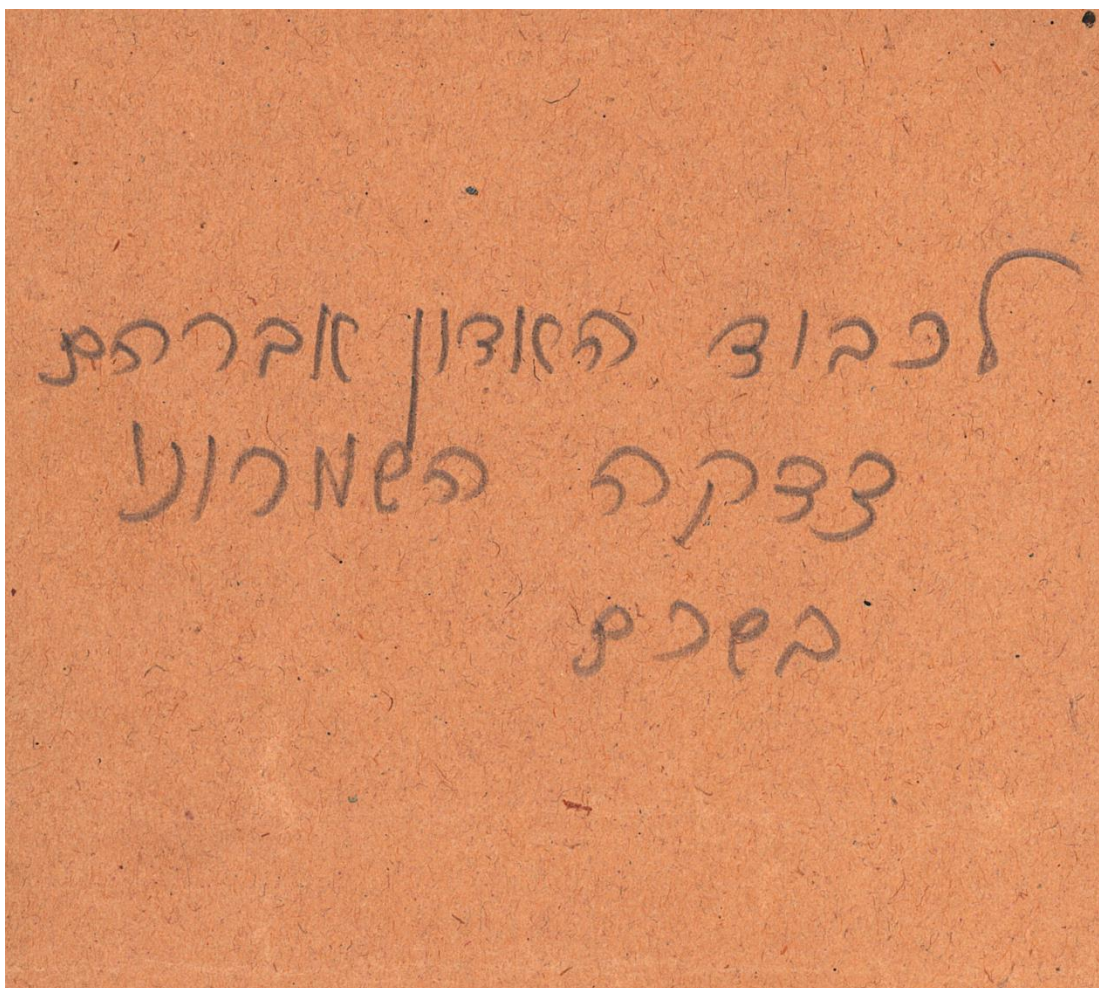 לכבוד האדון אברהם
צדקה השמרוני
בשכם